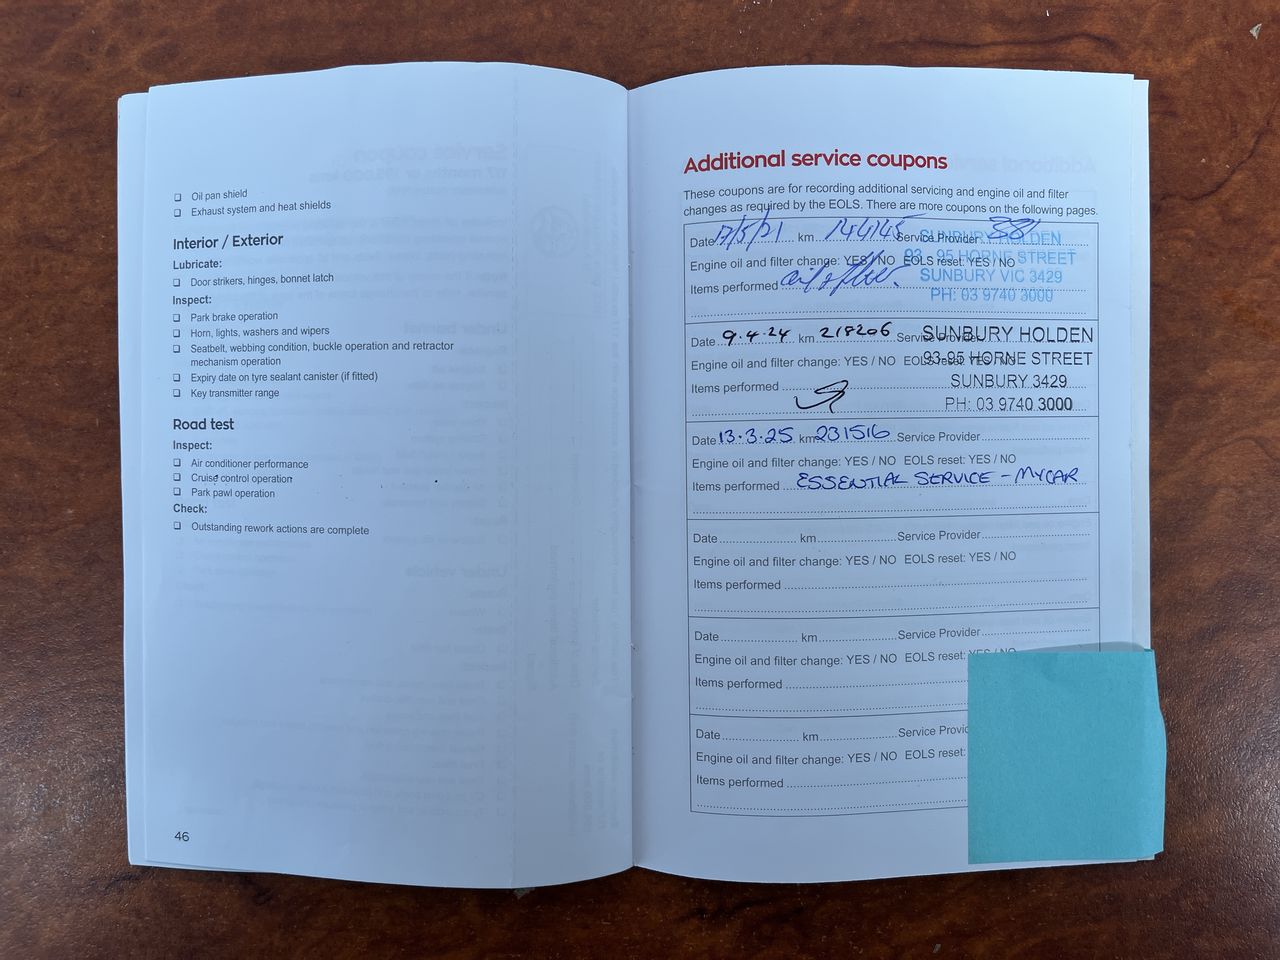 ❑ Oil pan shield
❑ Exhaust system and heat shields
Interior / Exterior
Lubricate:
❑ Door strikers, hinges, bonnet latch
Inspect:
❑ Park brake operation
❑ Horn, lights, washers and wipers
❑ Seatbelt, webbing condition, buckle operation and retractor
mechanism operation
❑ Expiry date on tyre sealant canister (if fitted)
❑ Key transmitter range
Road test
Inspect:
❑ Air conditioner performance
❑ Cruise control operation
❑ Park pawl operation
Check:
❑ Outstanding rework actions are complete
46
Additional service coupons
These coupons are for recording additional servicing and engine oil and filter
changes as required by the EOLS. There are more coupons on the following pages.
Date 17/5/21 km 144145 Service Provider
SUNBURY HOLDEN
93 - 95 HORNE STREET
Engine oil and filter change: YES / NO EOLS reset: YES / NO
SUNBURY VIC 3429
Items performed
PH: 03 9740 3000
Date 9.4.24 km 218206 Service Provider
SUNBURY HOLDEN
93-95 HORNE STREET
Engine oil and filter change: YES / NO EOLS reset: YES / NO
SUNBURY 3429
Items performed
PH: 03 9740 3000
Date 13.3.25 km 231516 Service Provider
Engine oil and filter change: YES / NO EOLS reset: YES / NO
Items performed ESSENTIAL SERVICE - MYCAR
Date km Service Provider
Engine oil and filter change: YES / NO EOLS reset: YES / NO
Items performed
Date km Service Provider
Engine oil and filter change: YES / NO EOLS reset: YES / NO
Items performed
Date km Service
Engine oil and filter change: YES / NO EOLS reset:
Items performed